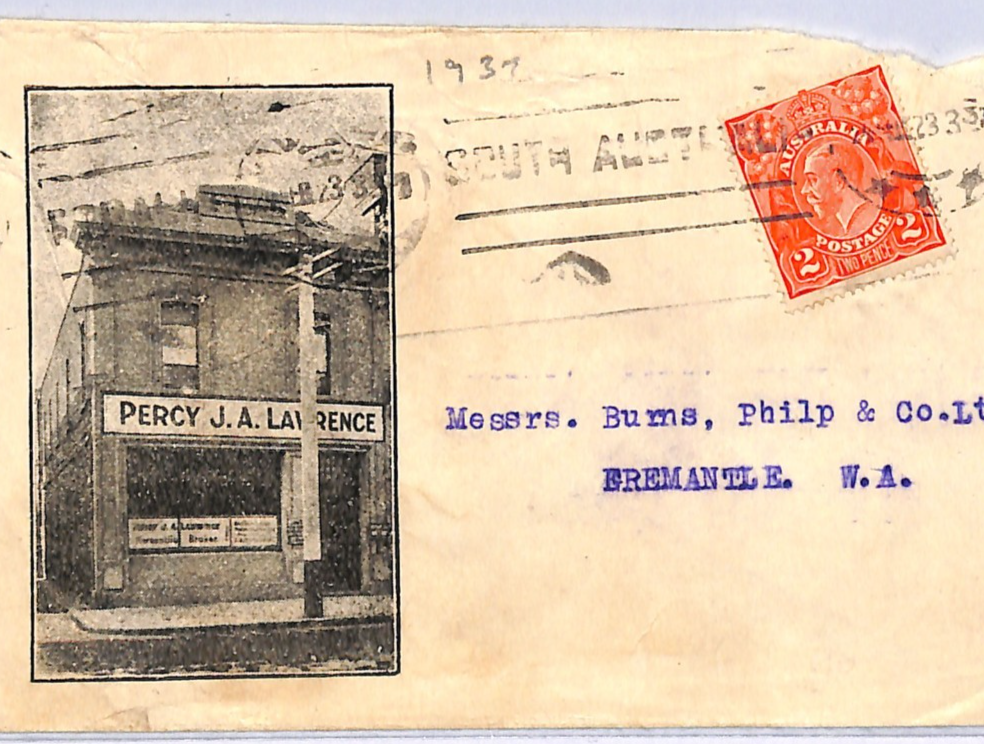 1937
SOUTH
23 3 37
AUSTRALIA
POSTAGE
2 TWO PENCE 2
PERCY J. A. LAWRENCE
Messrs. Burns, Philp & Co. Lt
FREMANTLE. W.A.
PERCY J. A. LAWRENCE
Mercantile Broker